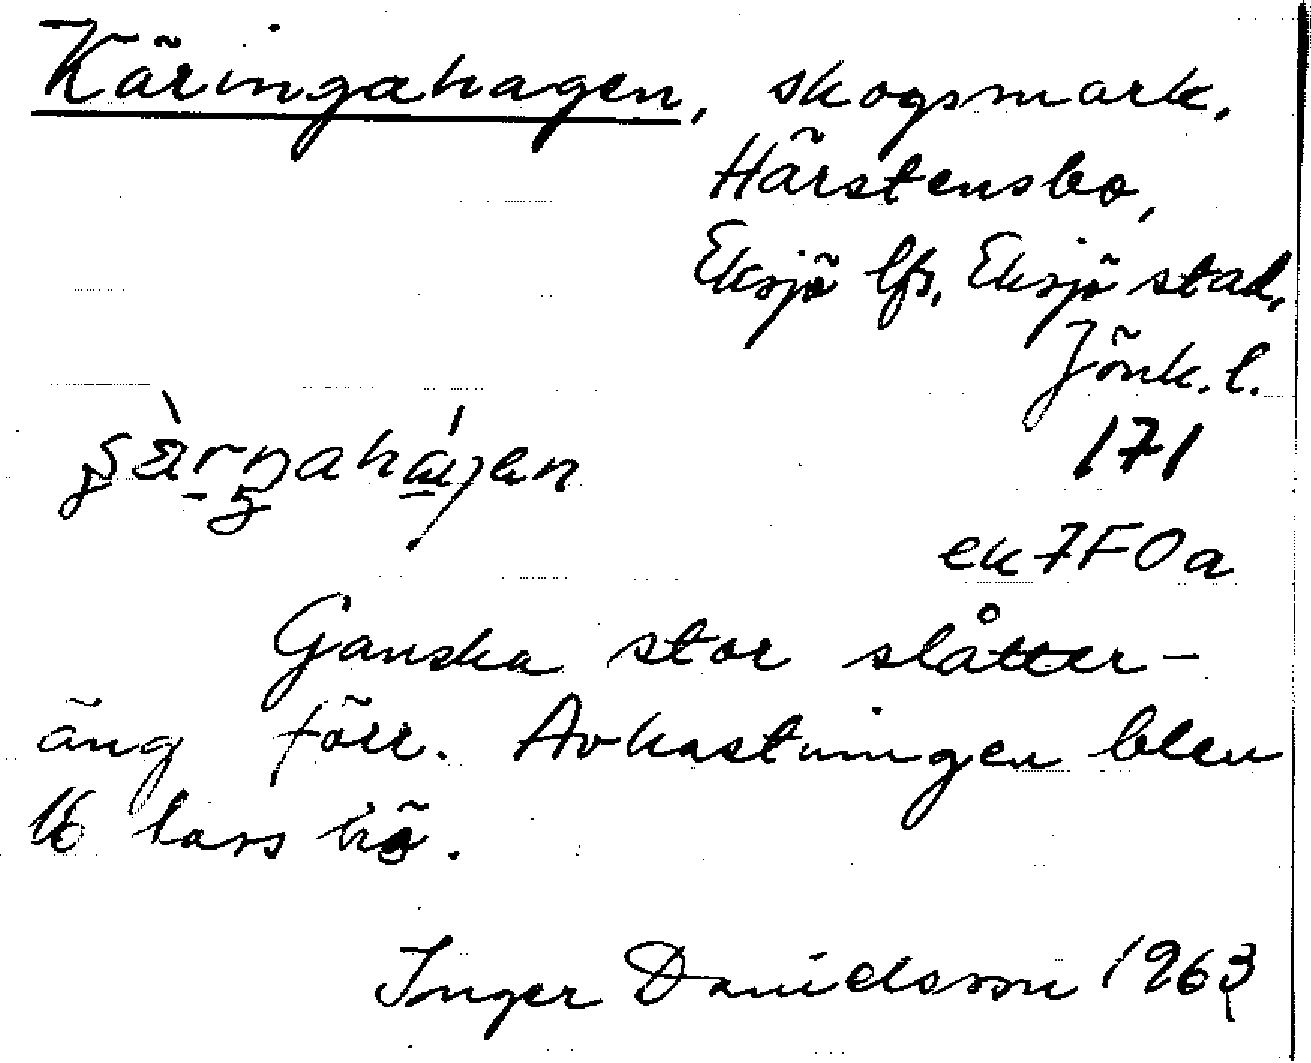 Käringahagen, skogsmark,
Härstensbo,
Eksjö lfs, Eksjö stad,
Jönk. l.
171
ek 7F0a
Ganska stor slåtter-
äng förr. Avkastningen blev
16 lass hö.
Inger Danielsson 1963